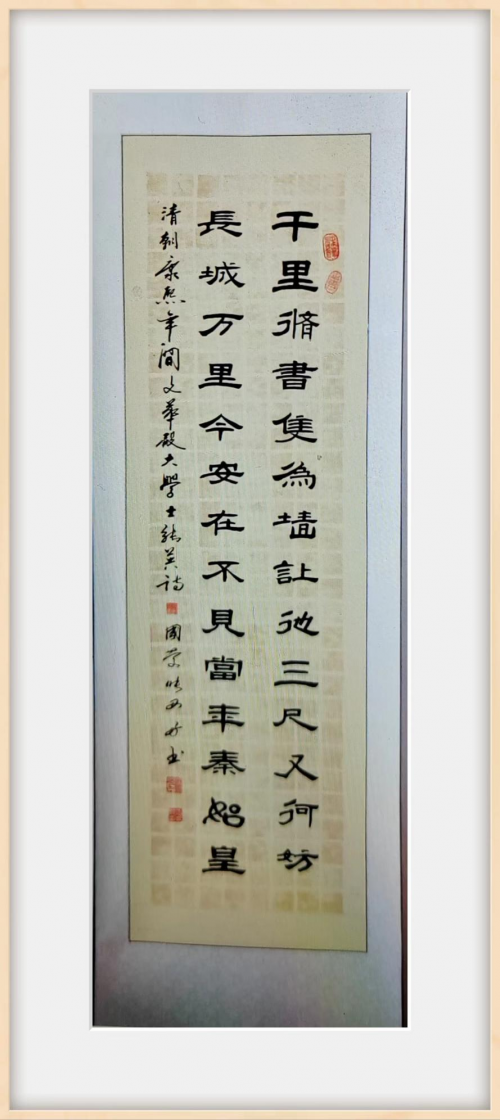 千里脩書隻為墙让他三尺又何妨
長城万里今安在不見當年秦始皇
清朝康熙年間文華殿大學士張英詩
國榮 书